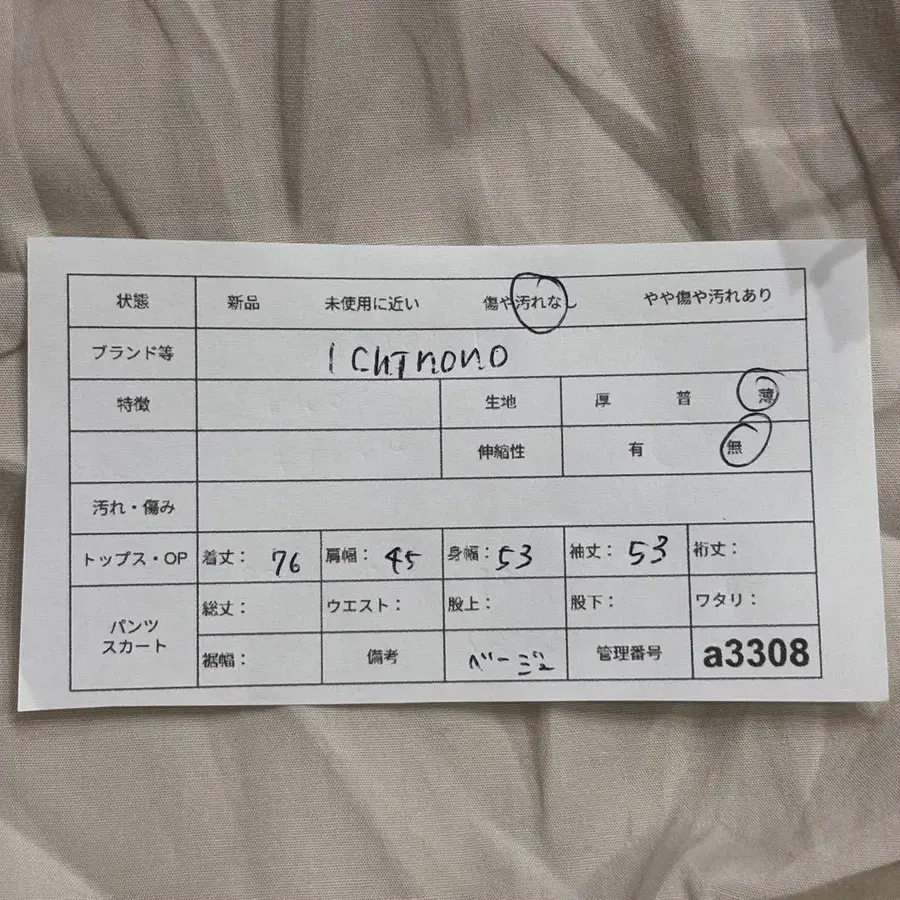 状態 新品 未使用に近い 傷や汚れなし やや傷や汚れあり
ブランド等 ichinono
特徴 生地 厚 普 薄
伸縮性 有 無
汚れ・傷み
トップス・OP 着丈： 76 肩幅： 45 身幅： 53 袖丈： 53 裄丈：
パンツ
スカート
総丈： ウエスト： 股上： 股下： ワタリ：
裾幅： 備考 ベージュ 管理番号 a3308